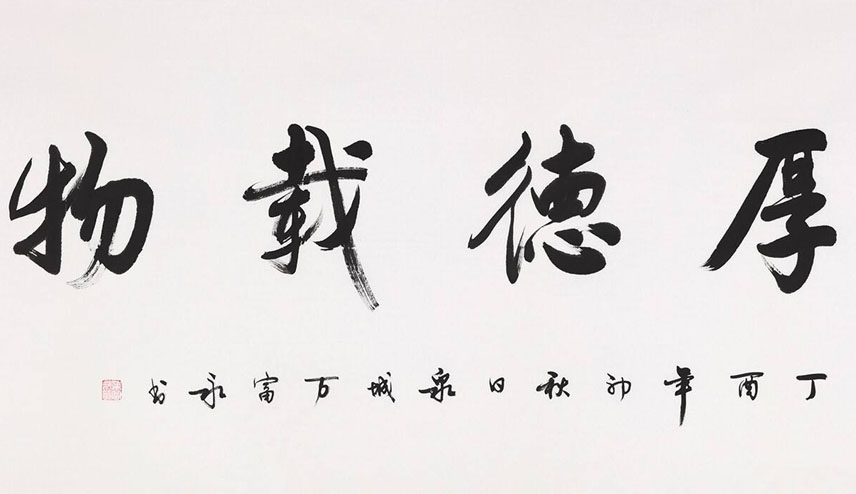 厚德载物
丁酉年初秋日泉城万富永书